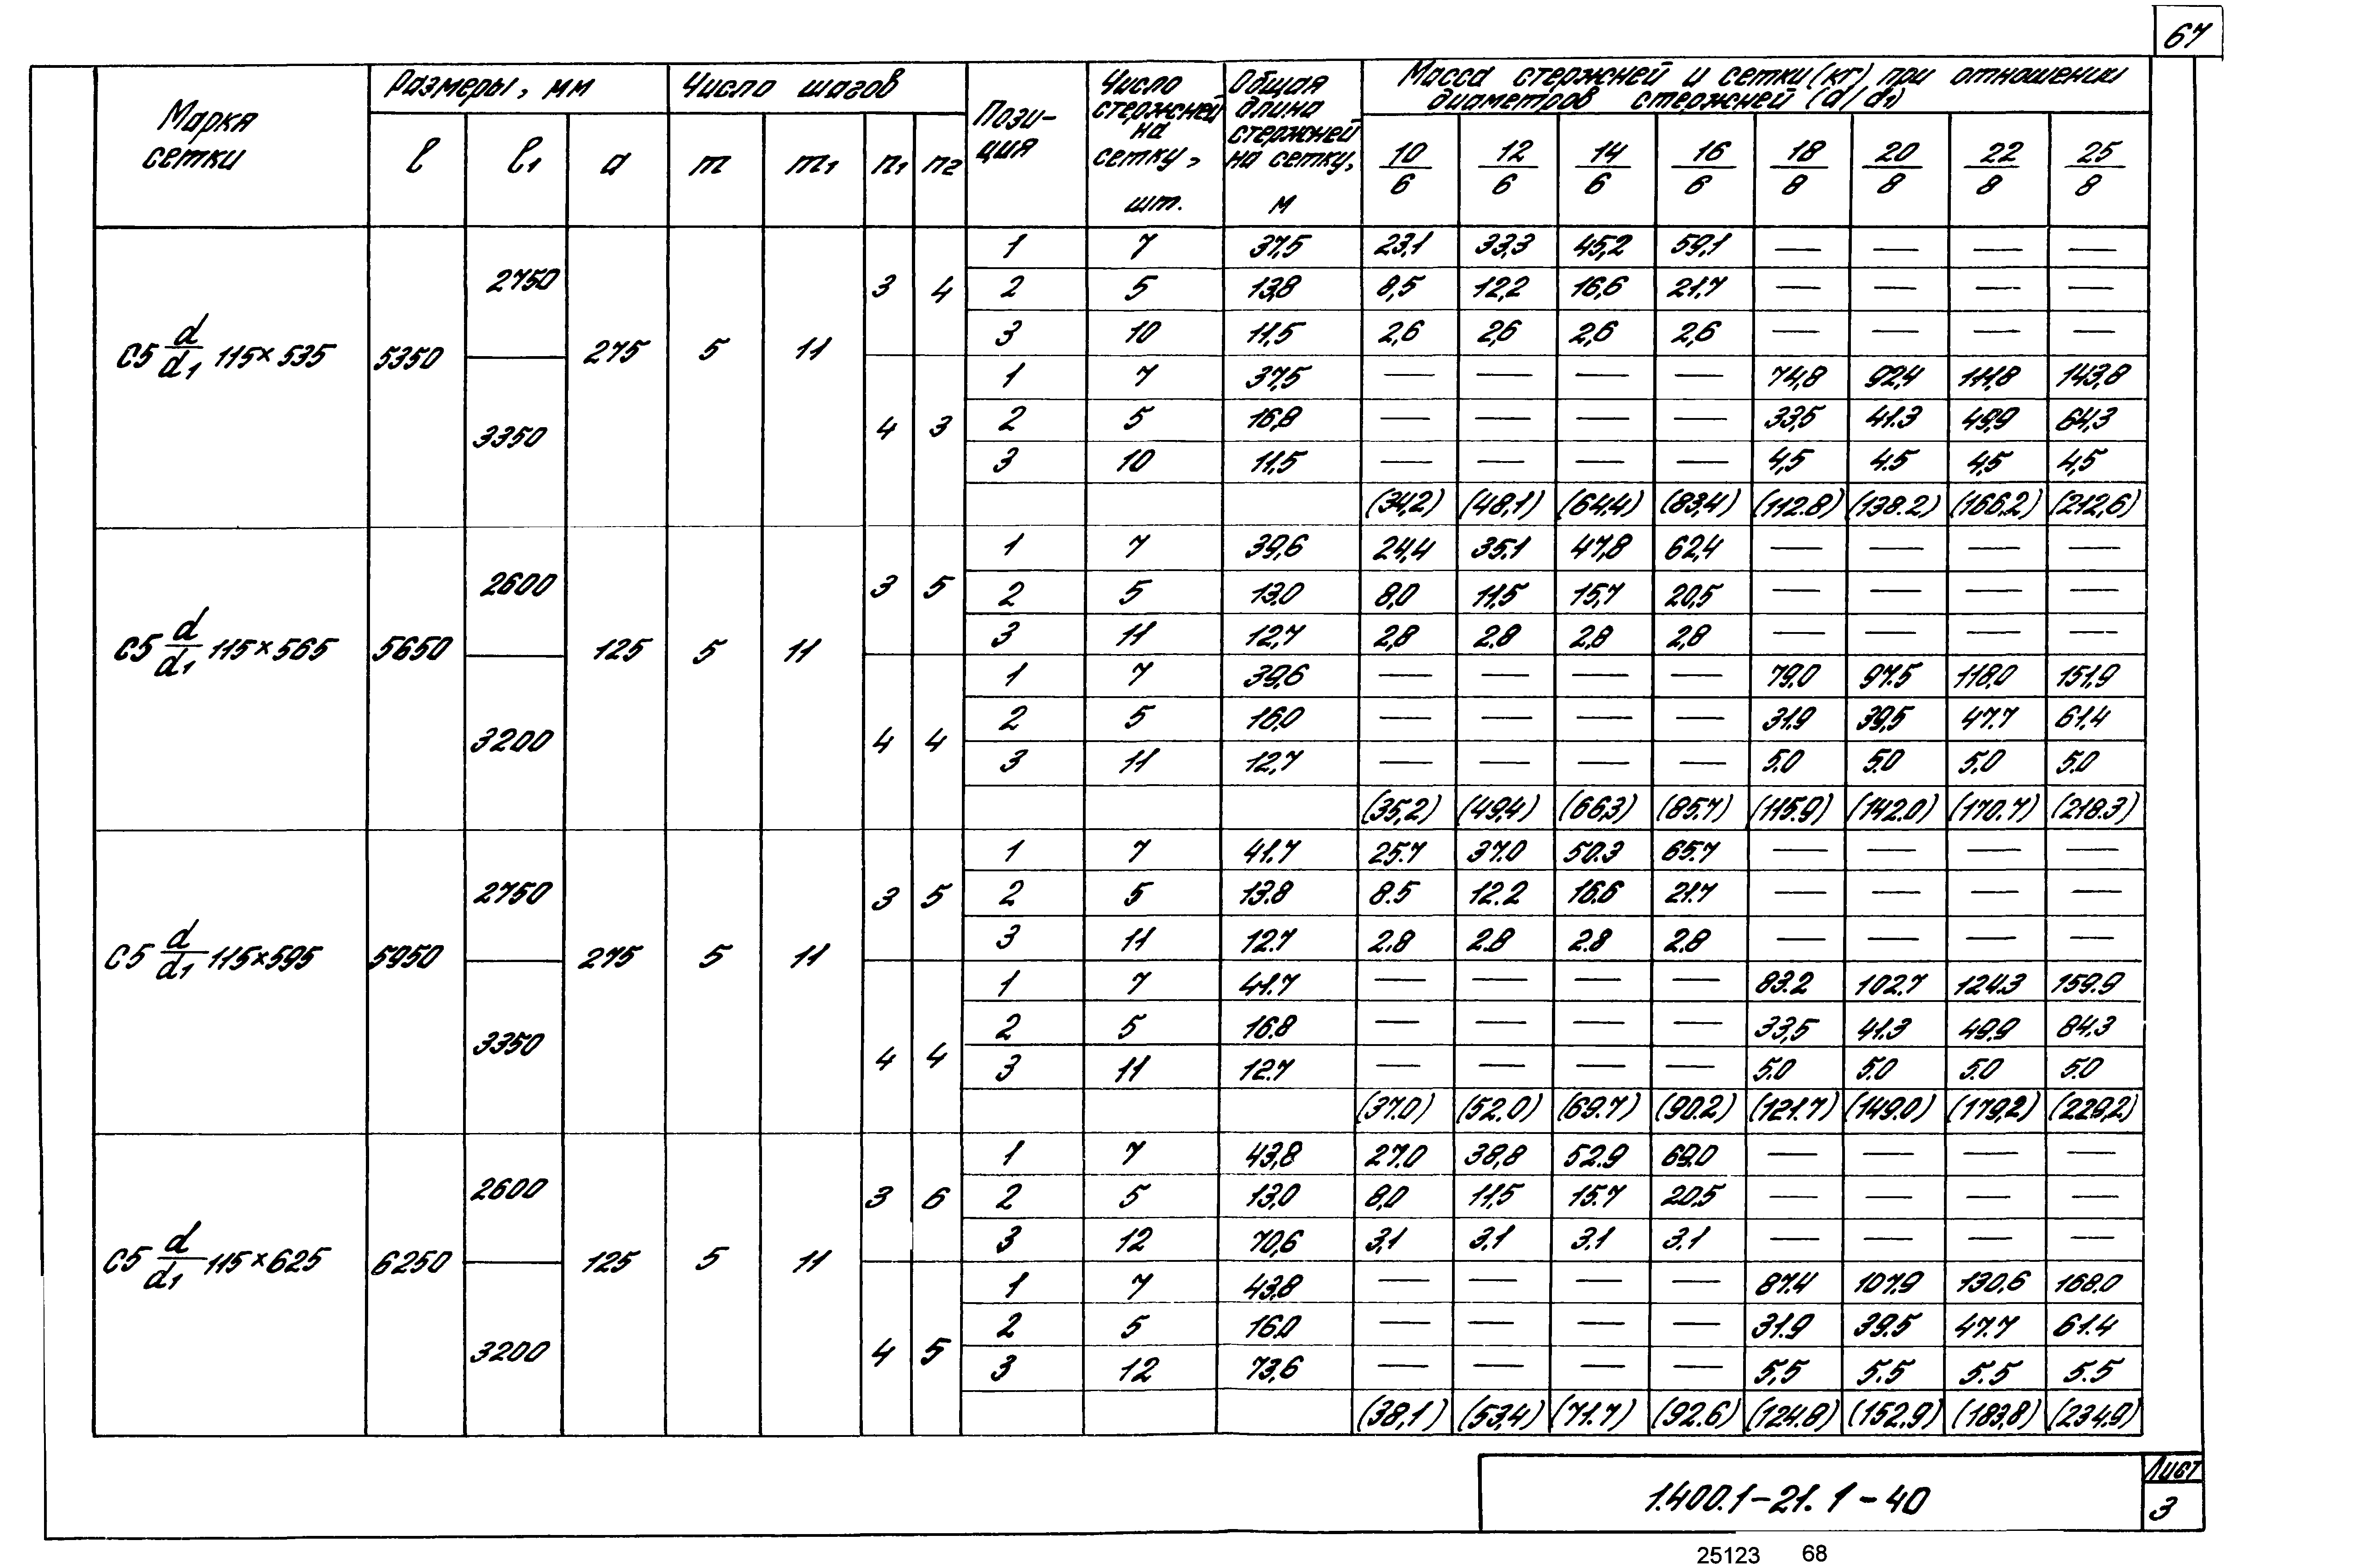 67
Марка сетки
Размеры, мм
Число шагов
Пози-ция
Число стержней на сетку, шт.
Общая длина стержней на сетку, м
Масса стержней и сетки (кг) при отношении диаметров стержней (d/d1)
l l1 a m m1 n1 n2 10/6 12/6 14/6 16/6 18/8 20/8 22/8 25/8
С5 d/d1 115×535 5350 275 5 11
2750 3 4
1 7 37,5 23,1 33,3 45,2 59,1 — — — —
2 5 13,8 8,5 12,2 16,6 21.7 — — — —
3 10 11,5 2,6 2,6 2,6 2,6 — — — —
3350 4 3
1 7 37,5 — — — — 74,8 92,4 111,8 143,8
2 5 16,8 — — — — 33,5 41.3 49,9 64,3
3 10 11,5 — — — — 4,5 4.5 4,5 4,5
(34,2) (48,1) (64,4) (83,4) (112.8) (138.2) (166,2) (212,6)
С5 d/d1 115×565 5650 125 5 11
2600 3 5
1 7 39,6 24,4 35.1 47,8 62,4 — — — —
2 5 13.0 8,0 11,5 15,7 20,5 — — — —
3 11 12,7 2,8 2.8 2,8 2,8 — — — —
3200 4 4
1 7 39,6 — — — — 79,0 97.5 118,0 151,9
2 5 16,0 — — — — 31.9 39,5 47.7 61.4
3 11 12,7 — — — — 5.0 5.0 5,0 5.0
(35,2) (49,4) (66,3) (85.7) (115.9) (142.0) (170.7) (218.3)
С5 d/d1 115×595 5950 275 5 11
2750 3 5
1 7 41.7 25.7 37.0 50.3 65.7 — — — —
2 5 13.8 8.5 12.2 16.6 21.7 — — — —
3 11 12.7 2.8 2.8 2.8 2.8 — — — —
3350 4 4
1 7 41.7 — — — — 83.2 102.7 124.3 159.9
2 5 16.8 — — — — 33,5 41.3 49.9 84,3
3 11 12.7 — — — — 5.0 5.0 5.0 5.0
(37.0) (52.0) (69.7) (90.2) (121.7) (149.0) (179,2) (229,2)
С5 d/d1 115×625 6250 125 5 11
2600 3 6
1 7 43,8 27.0 38,8 52.9 69.0 — — — —
2 5 13,0 8,0 11,5 15.7 20,5 — — — —
3 12 70,6 3,1 3.1 3.1 3.1 — — — —
3200 4 5
1 7 43,8 — — — — 87.4 107.9 130,6 168.0
2 5 16.0 — — — — 31.9 39.5 47.7 61.4
3 12 73,6 — — — — 5,5 5.5 5.5 5.5
(38,1) (53,4) (71.7) (92.6) (124.8) (152.9) (183,8) (234,9)
1.400.1-21. 1-40
Лист
3
25123 68